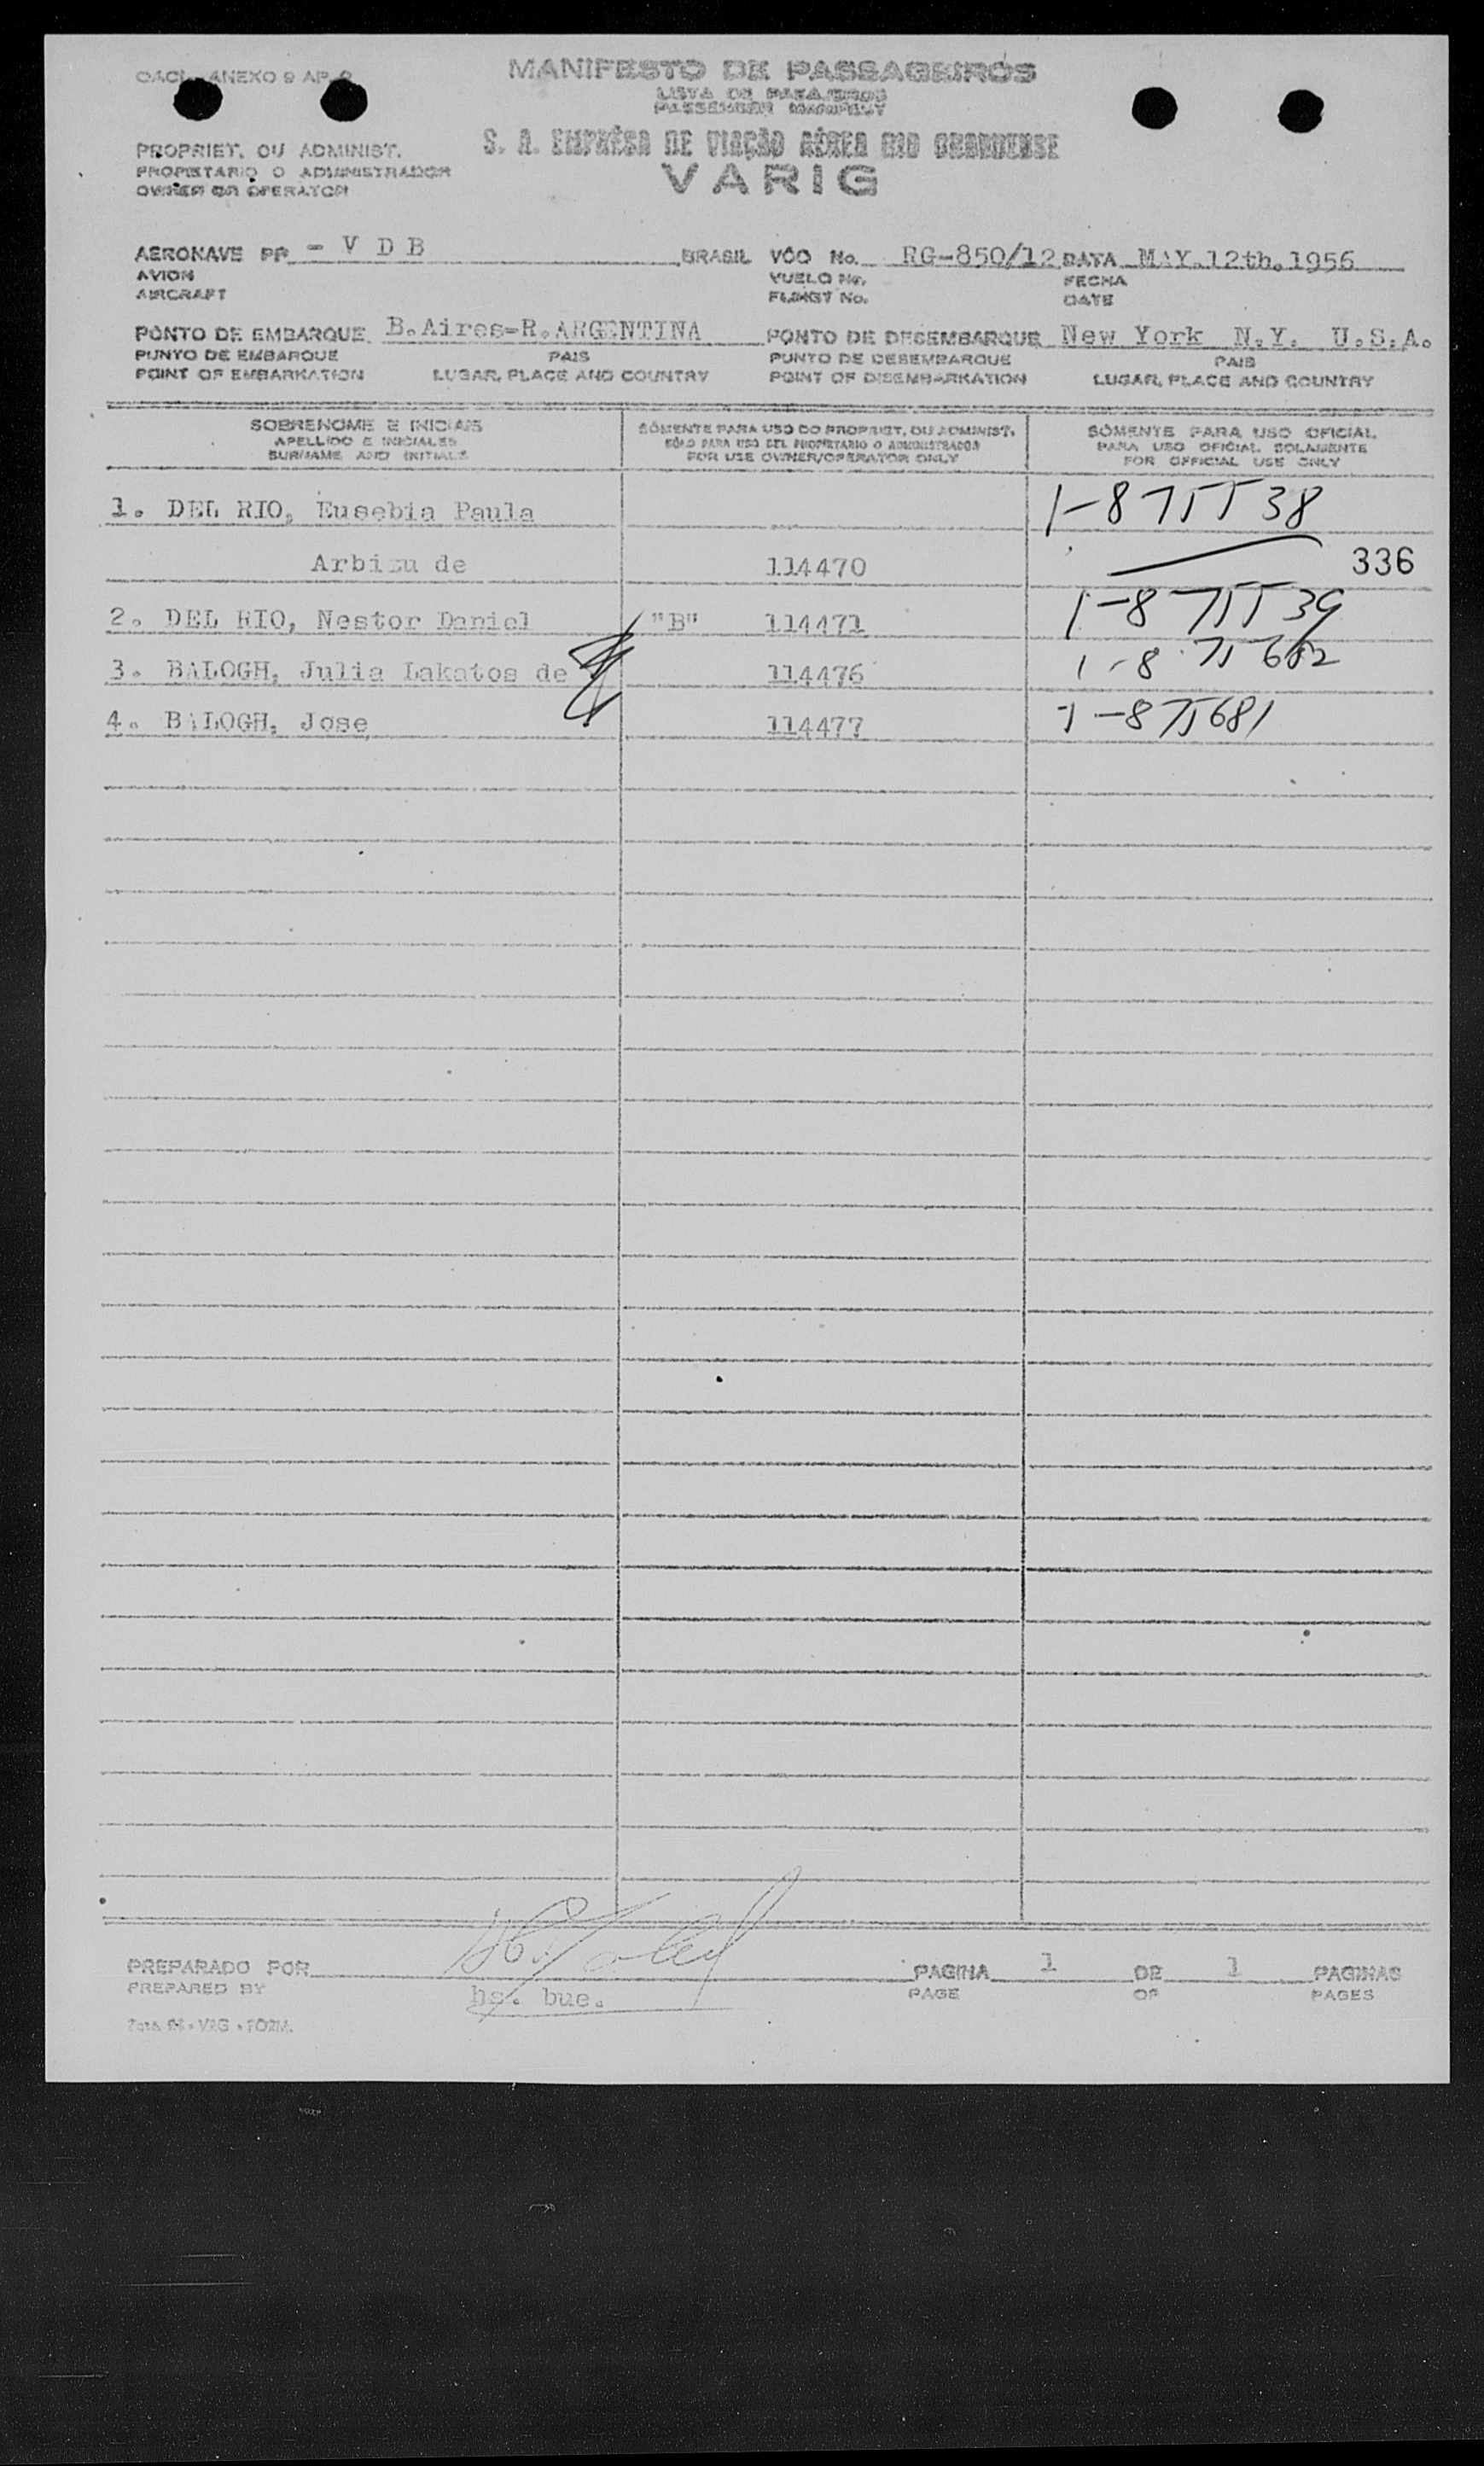 OACI - ANEXO 9 AP. 2
MANIFESTO DE PASSAGEIROS
LISTA DE PASAJEROS
PASSENGER MANIFEST
S. A. EMPRÊSA DE VIAÇÃO AÉREA RIO GRANDENSE
VARIG
PROPRIET. OU ADMINIST.
PROPIETARIO O ADMINISTRADOR
OWNER OR OPERATOR
AERONAVE PP - V D B BRASIL VÔO No. RG-850/12 DATA MAY.12th.1956
AVION VUELO No. FECHA
AIRCRAFT FLIHGT No. DATE
PONTO DE EMBARQUE B.Aires-R.ARGENTINA PONTO DE DESEMBARQUE New York N.Y. U.S.A.
PUNTO DE EMBARQUE PAIS PUNTO DE DESEMBARQUE PAIS
POINT OF EMBARKATION LUGAR, PLACE AND COUNTRY POINT OF DISEMBARKATION LUGAR, PLACE AND COUNTRY
SOBRENOME E INICIAIS SÒMENTE PARA USO DO PROPRIET. OU ADMINIST. SÒMENTE PARA USO OFICIAL
APELLIDO E INICIALES SÓLO PARA USO DEL PROPIETARIO O ADMINISTRADOR PARA USO OFICIAL SOLAMENTE
SURNAME AND INITIALS FOR USE OWNER/OPERATOR ONLY FOR OFFICIAL USE ONLY
1. DEL RIO, Eusebia Paula 1-875538
Arbizu de 114470 336
2. DEL RIO, Nestor Daniel "B" 114471 1-875539
3. BALOGH, Julia Lakatos de 114476 1-875682
4. BALOGH, Jose 114477 1-875681
PREPARADO POR PAGINA 1 DE 1 PAGINAS
PREPARED BY hs. bue. PAGE OF PAGES
VRG - FORM.